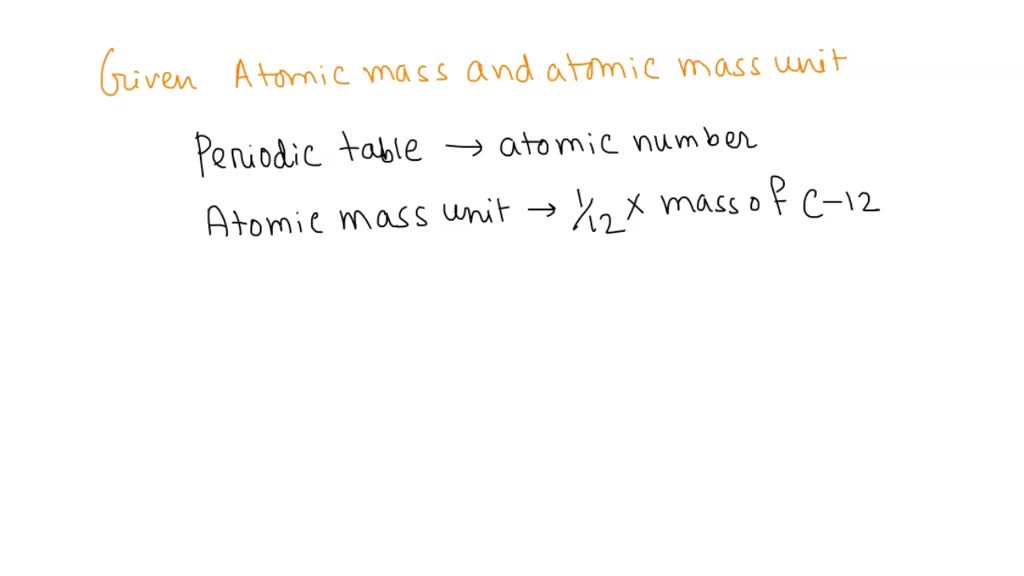 Given Atomic mass and atomic mass unit
Periodic table → atomic number
Atomic mass unit → 1/12 × mass of C-12